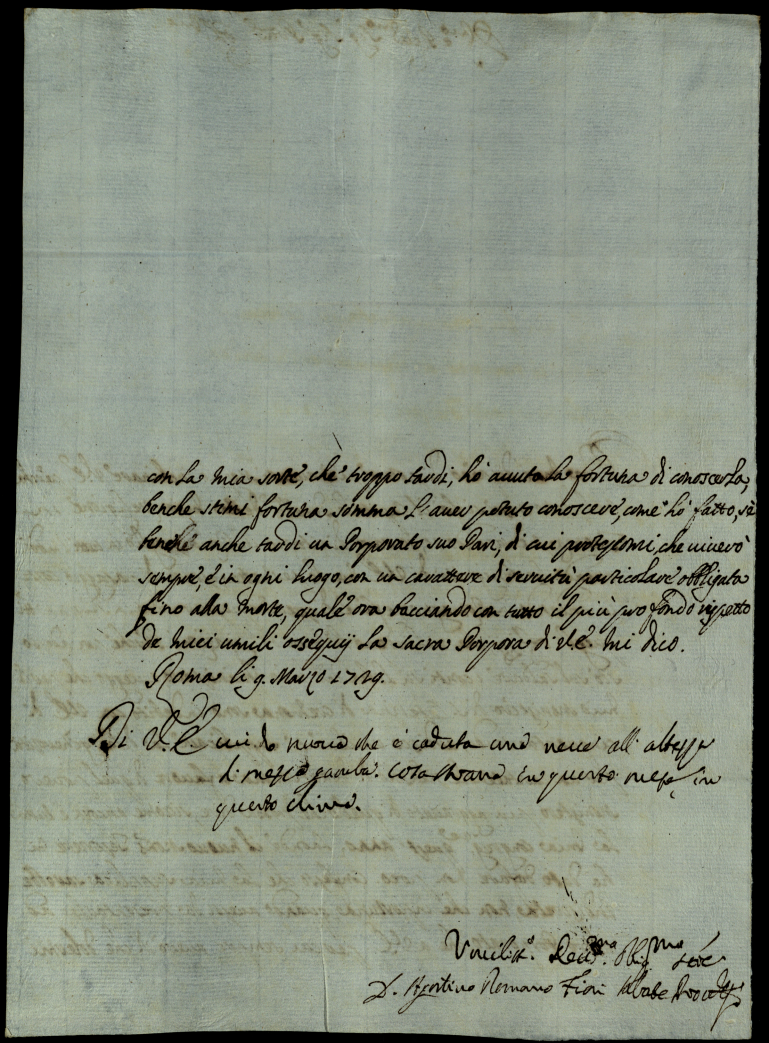 con la mia sorte, che troppo tardi, hò auuta la fortuna di conoscerla,
benche stimi fortuna somma l'auer potuto conoscere, come hò fatto, sì
benche anche tardi un Porporato suo Pari, di cui protestomi, che viuerò
sempre, è in ogni luogo, con un carattere di seruitù particolare obbligata
fino alla morte, quale ora bacciando con tutto il più profondo rispetto
de miei umili ossequij la sacra Porpora di V.E. mi dico.
Roma li 9. Marzo 1729.
Di V. E. cui do nuova che è caduta una neve all' altezza
di mezza gamba. cosa strana in questo mese, in
questo clima.
Umiliss.º Deu.mo Obbig.mo
D. Agostino Romano Fiori Abate